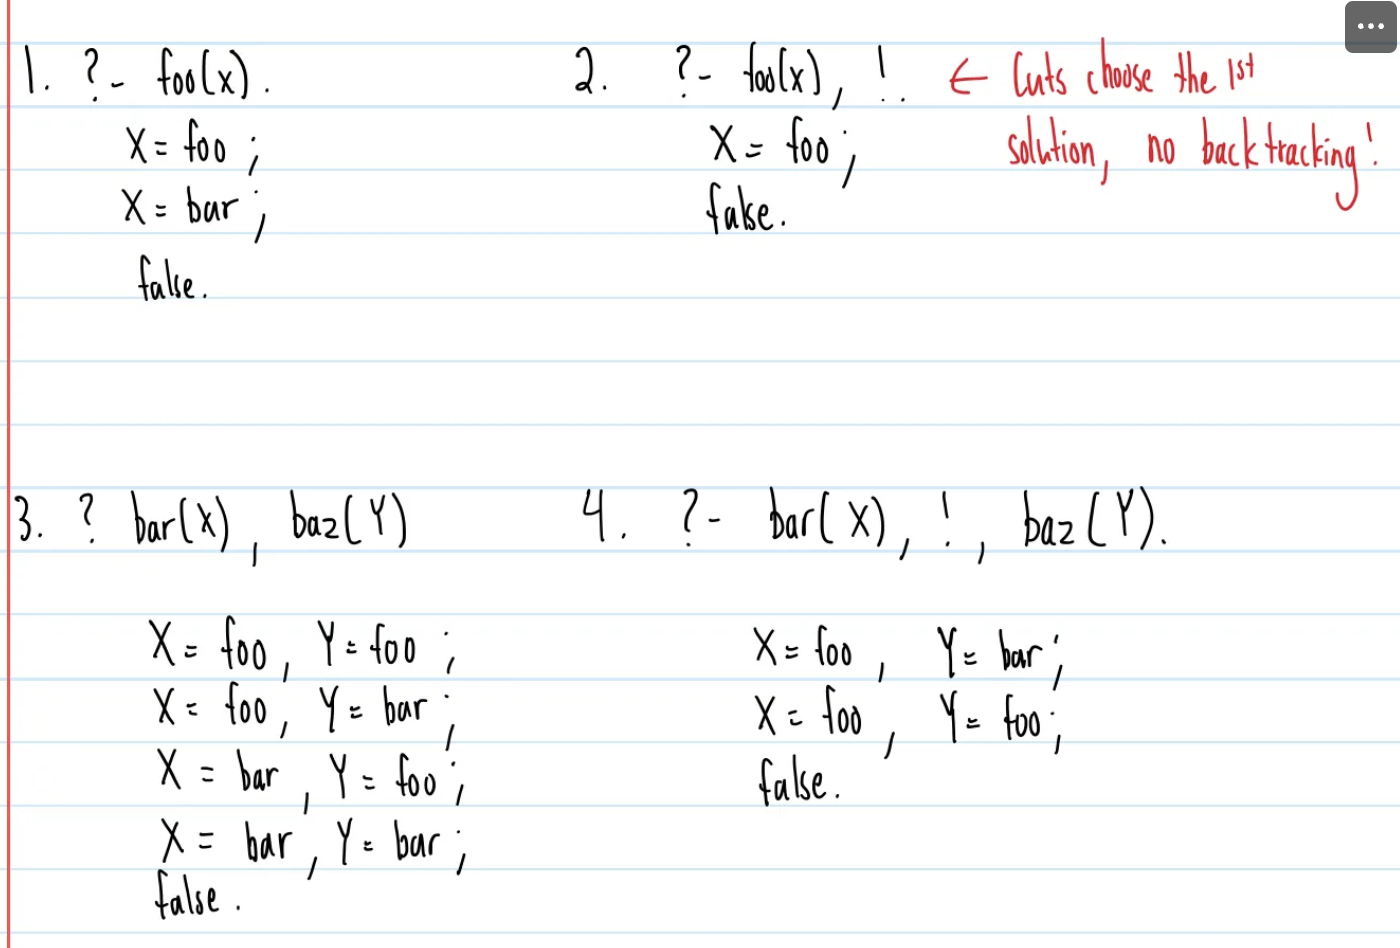 1. ?- foo(x).
X = foo ;
X = bar ;
false.
2. ?- foo(x), !. ← Cuts choose the 1st
solution, no backtracking!
X = foo ;
false.
3. ? bar(X), baz(Y)
X = foo, Y = foo ;
X = foo, Y = bar ;
X = bar, Y = foo ;
X = bar, Y = bar ;
false.
4. ?- bar(X), !, baz(Y).
X = foo, Y = bar ;
X = foo, Y = foo ;
false.